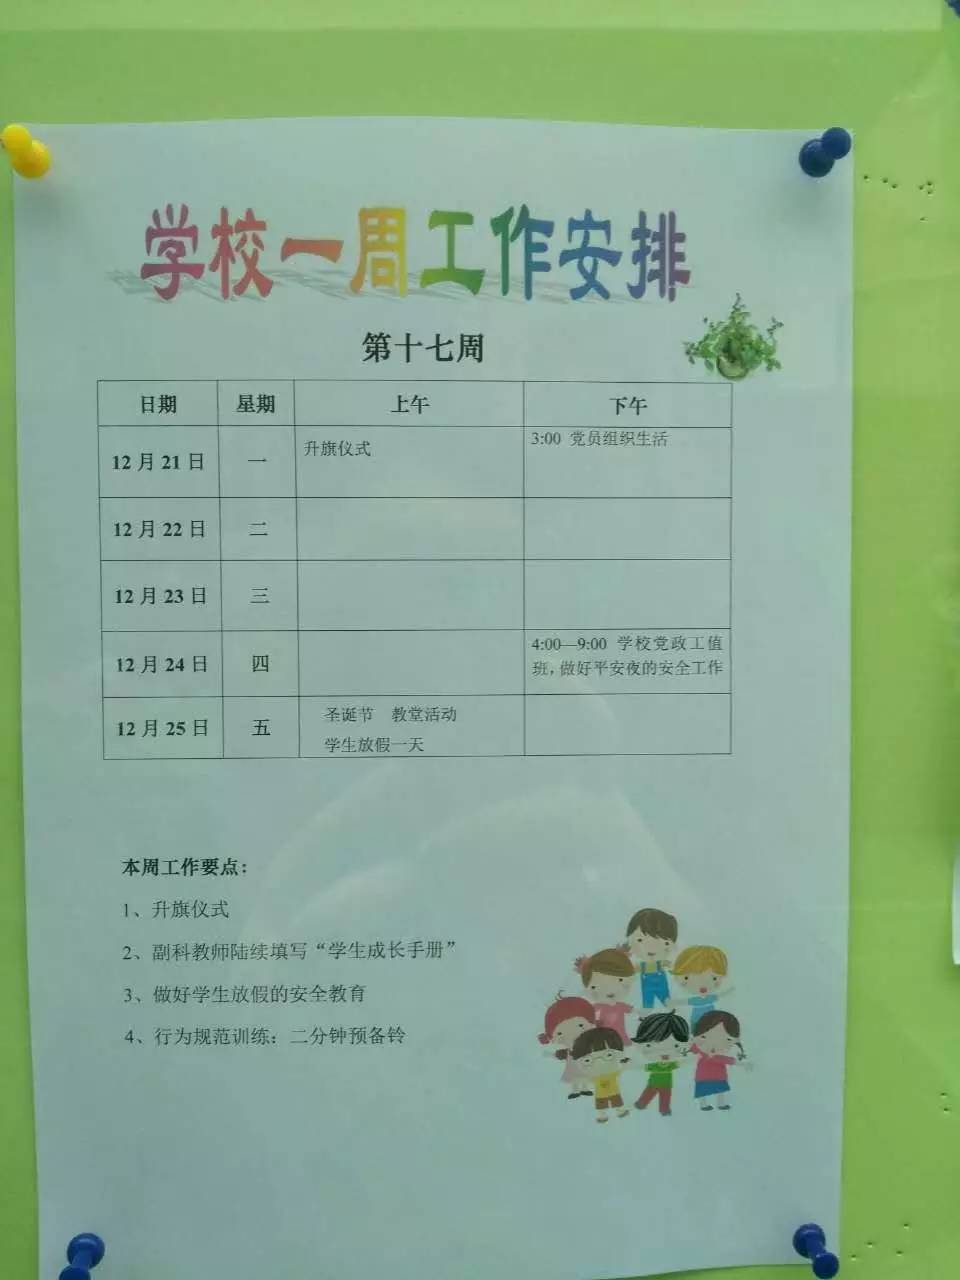 学校一周工作安排
第十七周
日期 星期 上午 下午
12月21日 一 升旗仪式 3:00 党员组织生活
12月22日 二
12月23日 三
12月24日 四 4:00—9:00 学校党政工值
班，做好平安夜的安全工作
12月25日 五 圣诞节 教堂活动
学生放假一天
本周工作要点：
1、升旗仪式
2、副科教师陆续填写“学生成长手册”
3、做好学生放假的安全教育
4、行为规范训练：二分钟预备铃